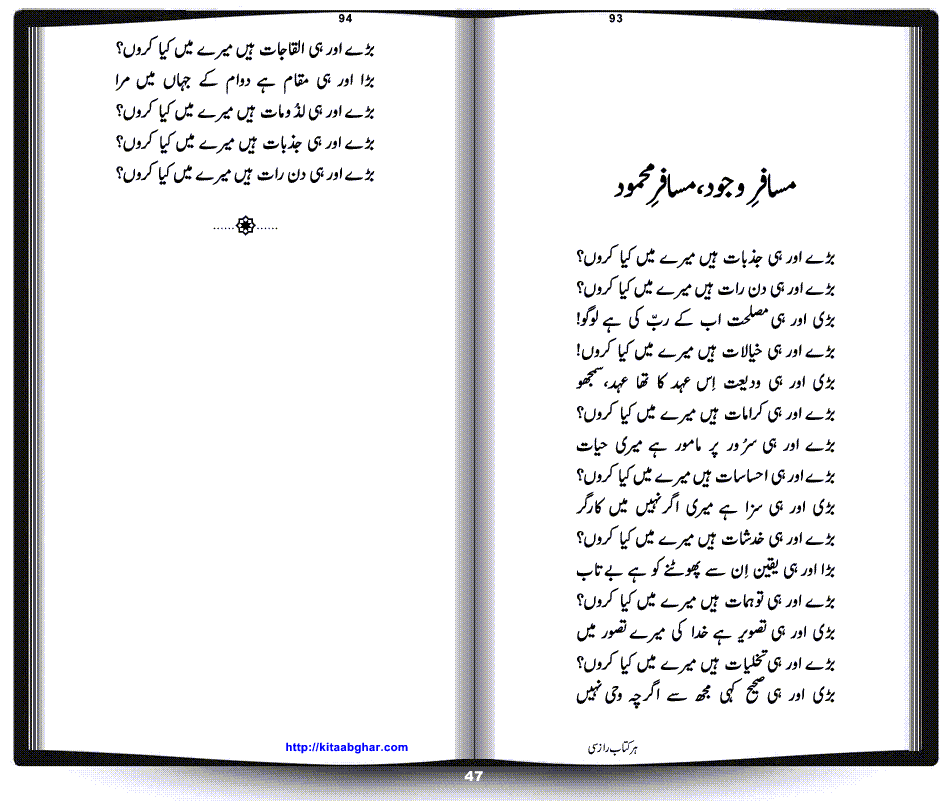 93
مسافرِ وجود، مسافرِ محمود
بڑے اور ہی جذبات ہیں میرے میں کیا کروں؟
بڑے اور ہی دن رات ہیں میرے میں کیا کروں؟
بڑی اور ہی مصلحت اب کے ربّ کی ہے لوگو!
بڑے اور ہی خیالات ہیں میرے میں کیا کروں!
بڑی اور ہی ودیعت اِس عہد کا تھا عہد، سمجھو
بڑے اور ہی کرامات ہیں میرے میں کیا کروں؟
بڑے اور ہی سرُور پر مامور ہے میری حیات
بڑے اور ہی احساسات ہیں میرے میں کیا کروں؟
بڑی اور ہی سزا ہے میری اگر نہیں میں کارگر
بڑے اور ہی خدشات ہیں میرے میں کیا کروں؟
بڑا اور ہی یقین اِن سے پھوٹنے کو ہے بے تاب
بڑے اور ہی توہمات ہیں میرے میں کیا کروں؟
بڑی اور ہی تصویر ہے خدا کی میرے تصور میں
بڑے اور ہی تخلیات ہیں میرے میں کیا کروں؟
بڑی اور ہی صحیح کہی مجھ سے اگرچہ وحی نہیں
ہر کتاب رازسی
94
بڑے اور ہی القاجات ہیں میرے میں کیا کروں؟
بڑا اور ہی مقام ہے دوام کے جہاں میں مرا
بڑے اور ہی لدُومات ہیں میرے میں کیا کروں؟
بڑے اور ہی جذبات ہیں میرے میں کیا کروں؟
بڑے اور ہی دن رات ہیں میرے میں کیا کروں؟
http://kitaabghar.com
47